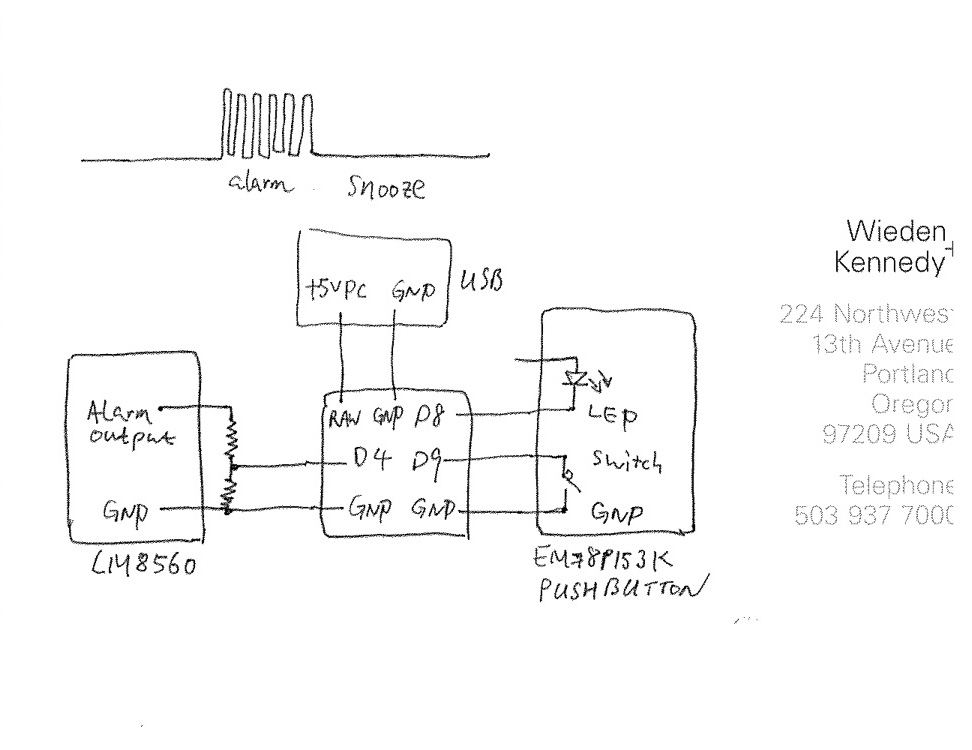 alarm   snooze
+5VDC GND USB
RAW GND D8
D4 D9
GND GND
Alarm
output
GND
LM8560
LED
switch
GND
EM78P153K
PUSHBUTTON
Wieden
Kennedy+
224 Northwest
13th Avenue
Portland
Oregon
97209 USA
Telephone
503 937 7000